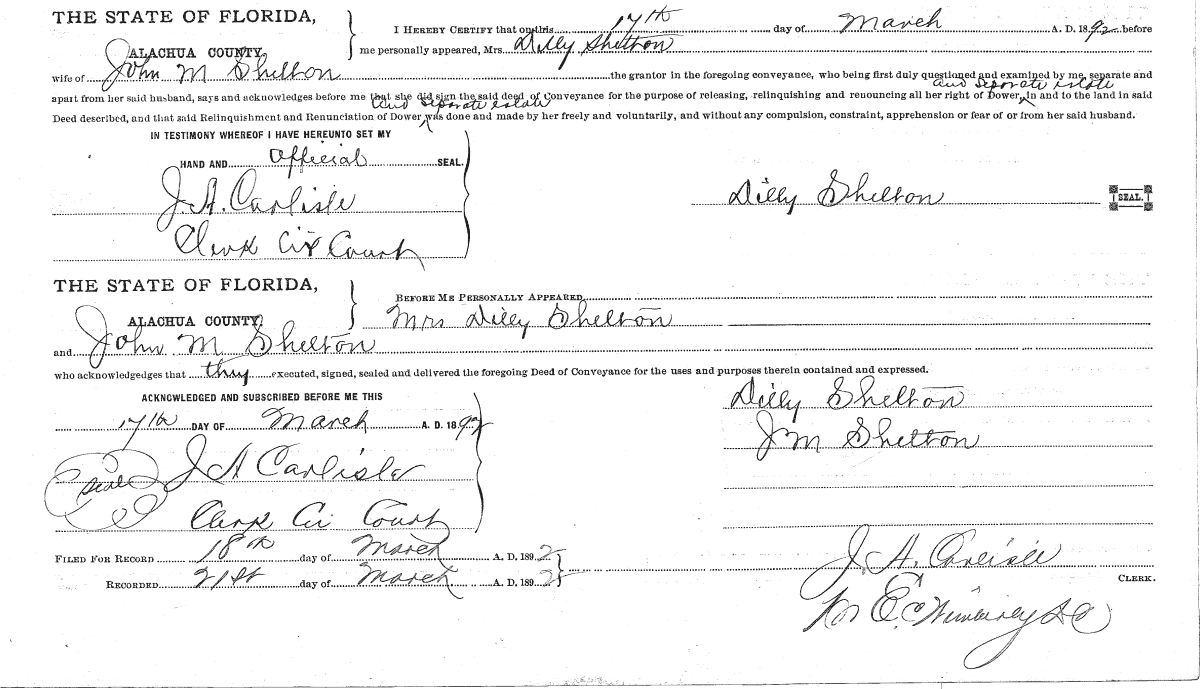 THE STATE OF FLORIDA,
I HEREBY CERTIFY that on this 17th day of March A. D. 1892 before
ALACHUA COUNTY.
me personally appeared, Mrs. Dilly Shelton
wife of John M Shelton the grantor in the foregoing conveyance, who being first duly questioned and examined by me, separate and
and Seperate estate
apart from her said husband, says and acknowledges before me that she did sign the said deed of Conveyance for the purpose of releasing, relinquishing and renouncing all her right of Dower, in and to the land in said
and Seperate estate
Deed described, and that said Relinquishment and Renunciation of Dower was done and made by her freely and voluntarily, and without any compulsion, constraint, apprehension or fear of or from her said husband.
IN TESTIMONY WHEREOF I HAVE HEREUNTO SET MY
HAND AND official SEAL.
J. A. Carlisle
Dilly Shelton SEAL.
Clerk Cir Court
THE STATE OF FLORIDA,
BEFORE ME PERSONALLY APPEARED
ALACHUA COUNTY
Mrs Dilly Shelton
and John M Shelton
who acknowledgedges that they executed, signed, sealed and delivered the foregoing Deed of Conveyance for the uses and purposes therein contained and expressed.
ACKNOWLEDGED AND SUBSCRIBED BEFORE ME THIS
Dilly Shelton
17th DAY OF March A. D. 1892
J M Shelton
Seal J A Carlisle
Clerk Cir Court
FILED FOR RECORD 18th day of March A. D. 1892
J. A. Carlisle
RECORDED 21st day of March A. D. 1892
CLERK.
E. C. Wimberley D C